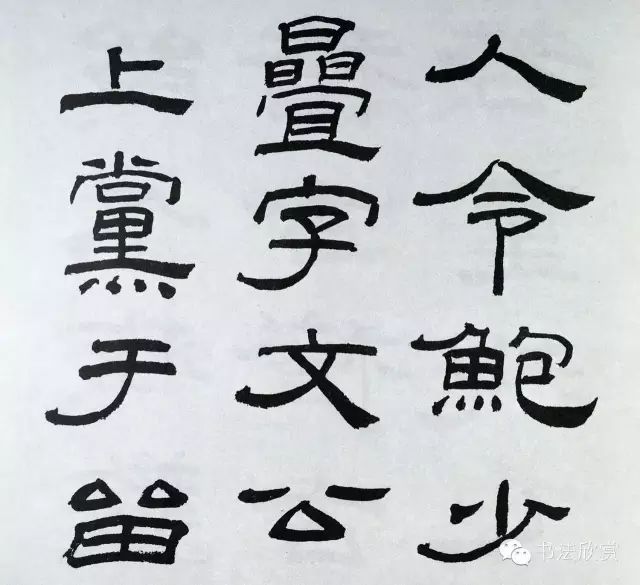 人令鮑少
疊字文公
上黨于留
书法欣赏